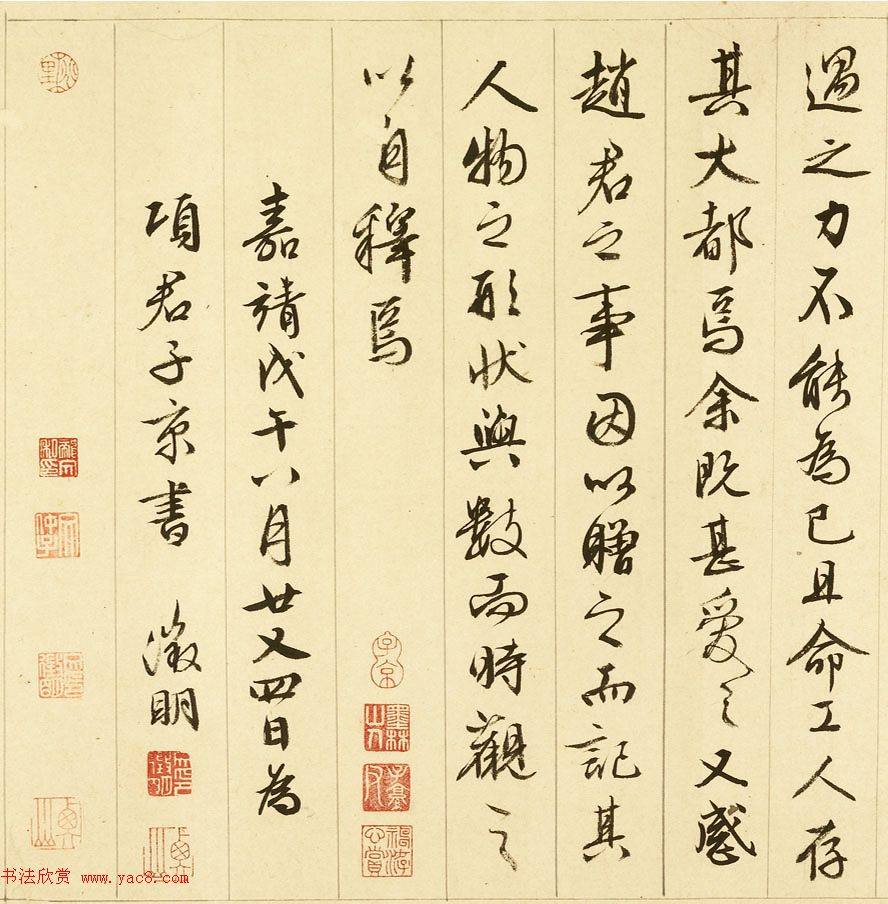 遇之力不能為已且命工人存
其大都焉余既甚愛之又感
趙君之事因以贈之而記其
人物之形狀與數而時觀之
以自釋焉
子京
墨林山人
嘉靖戊午八月廿又四日為
項君子京書 徵明
书法欣赏 www.yac8.com